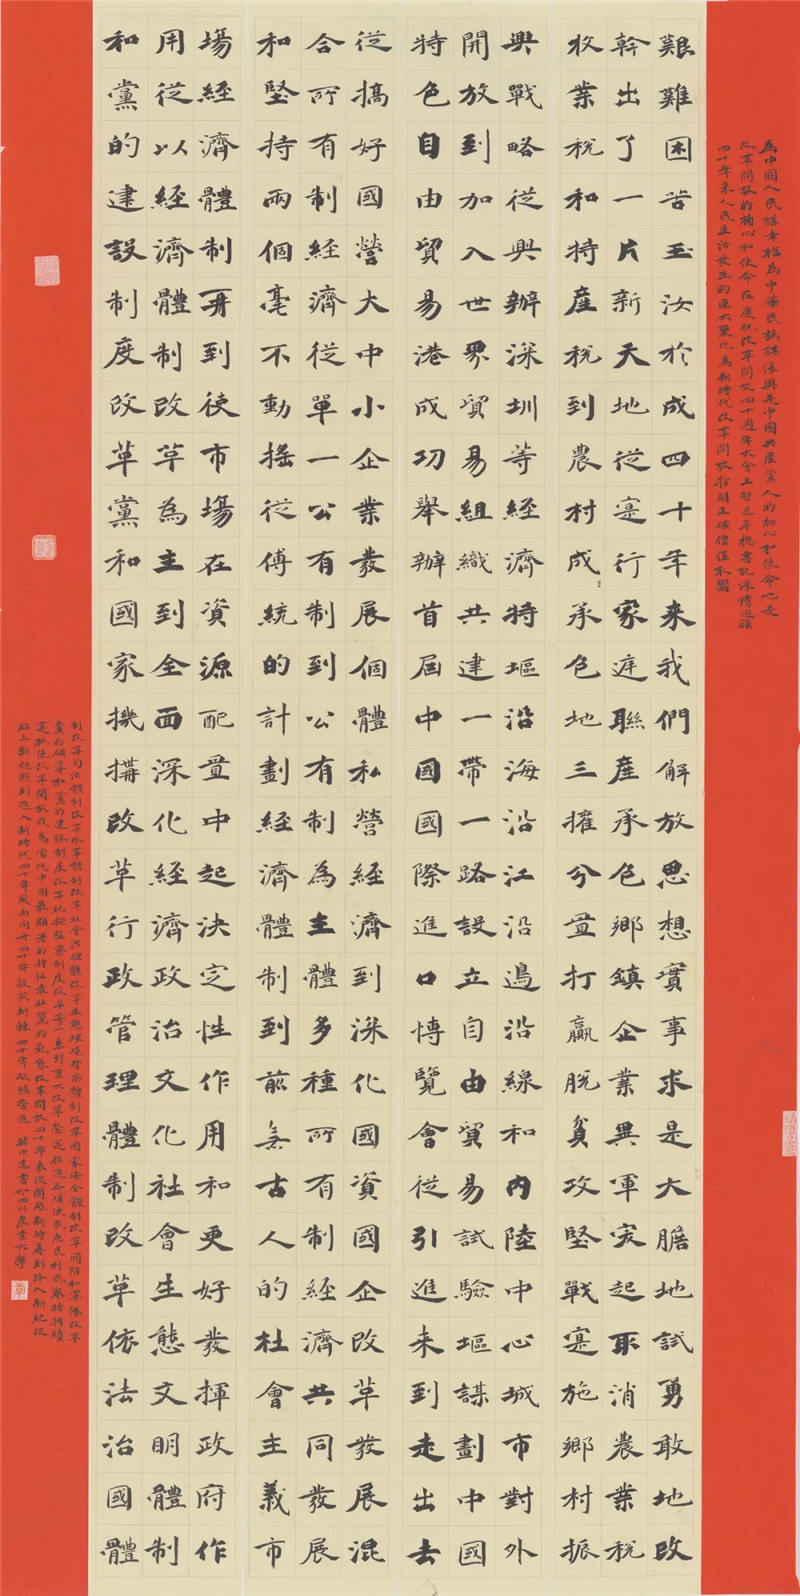 為中國人民謀幸福為中華民族謀復興是中國共產黨人的初心和使命也是
改革開放的初心和使命在慶祝改革開放四十週年大會上習近平總書記深情迴顧
四十年来人民生活發生的巨大變化為新時代改革開放指明正確價值取嚮
艱難困苦玉汝於成四十年来我們解放思想實事求是大膽地試勇敢地改
幹出了一片新天地從寔行家庭聯產承包鄉鎮企業異軍突起取消農業税
牧業税和特產税到農村成承包地三擁分置打贏脱貧攻堅戰寔施鄉村振
興戰略從興辦深圳等經濟特區沿海沿江沿邊沿線和内陸中心城市對外
開放到加入世界貿易組織共建一帶一路設立自由貿易試驗區謀劃中國
特色自由貿易港成功舉辦首屆中國國際進口博覽會從引進来到走出去
從搞好國營大中小企業發展個體私營經濟到深化國資國企改革發展混
合所有制經濟從單一公有制到公有制為主體多種所有制經濟共同發展
和堅持兩個毫不動摇從傳統的計劃經濟體制到前無古人的社會主義市
場經濟體制再到使市場在資源配置中起决定性作用和更好發揮政府作
用從以經濟體制改革為主到全面深化經濟政治文化社會生態文明體制
和黨的建設制度改革黨和國家機搆改革行政管理體制改革依法治國體
制改革司法體制改革外事體制改革社會治理體改革生態環境督察體制改革國家安全體制改革國防和軍隊改革
黨的領導和黨的建設制度改革紀檢監察制度改革等一系列重大改革扎實推進各項便民惠民利民舉措持續
寔施使改革開放成為當代中國最顯著的特征最壯麗的氣象改革開放四十年来從開啓新時期到跨入新紀從
站上新起點到進入新時代四十年風雨同舟四十年披荊斬棘四十年砥礪奮進 中建書於四川農業大學